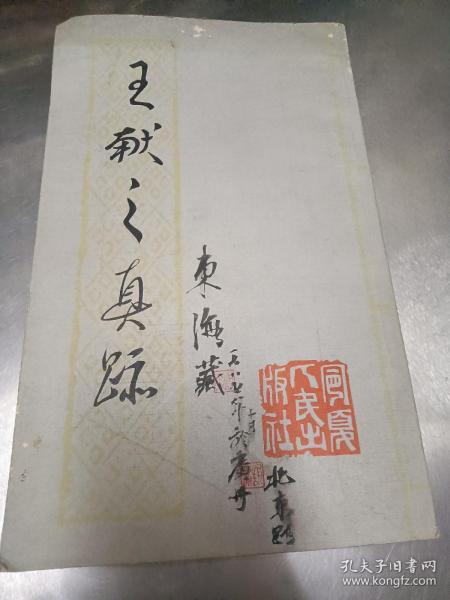 王献之真跡
東海藏
一九八七年十月於廣州
宁夏人民出版社
孔夫子旧书网
www.kongfz.com